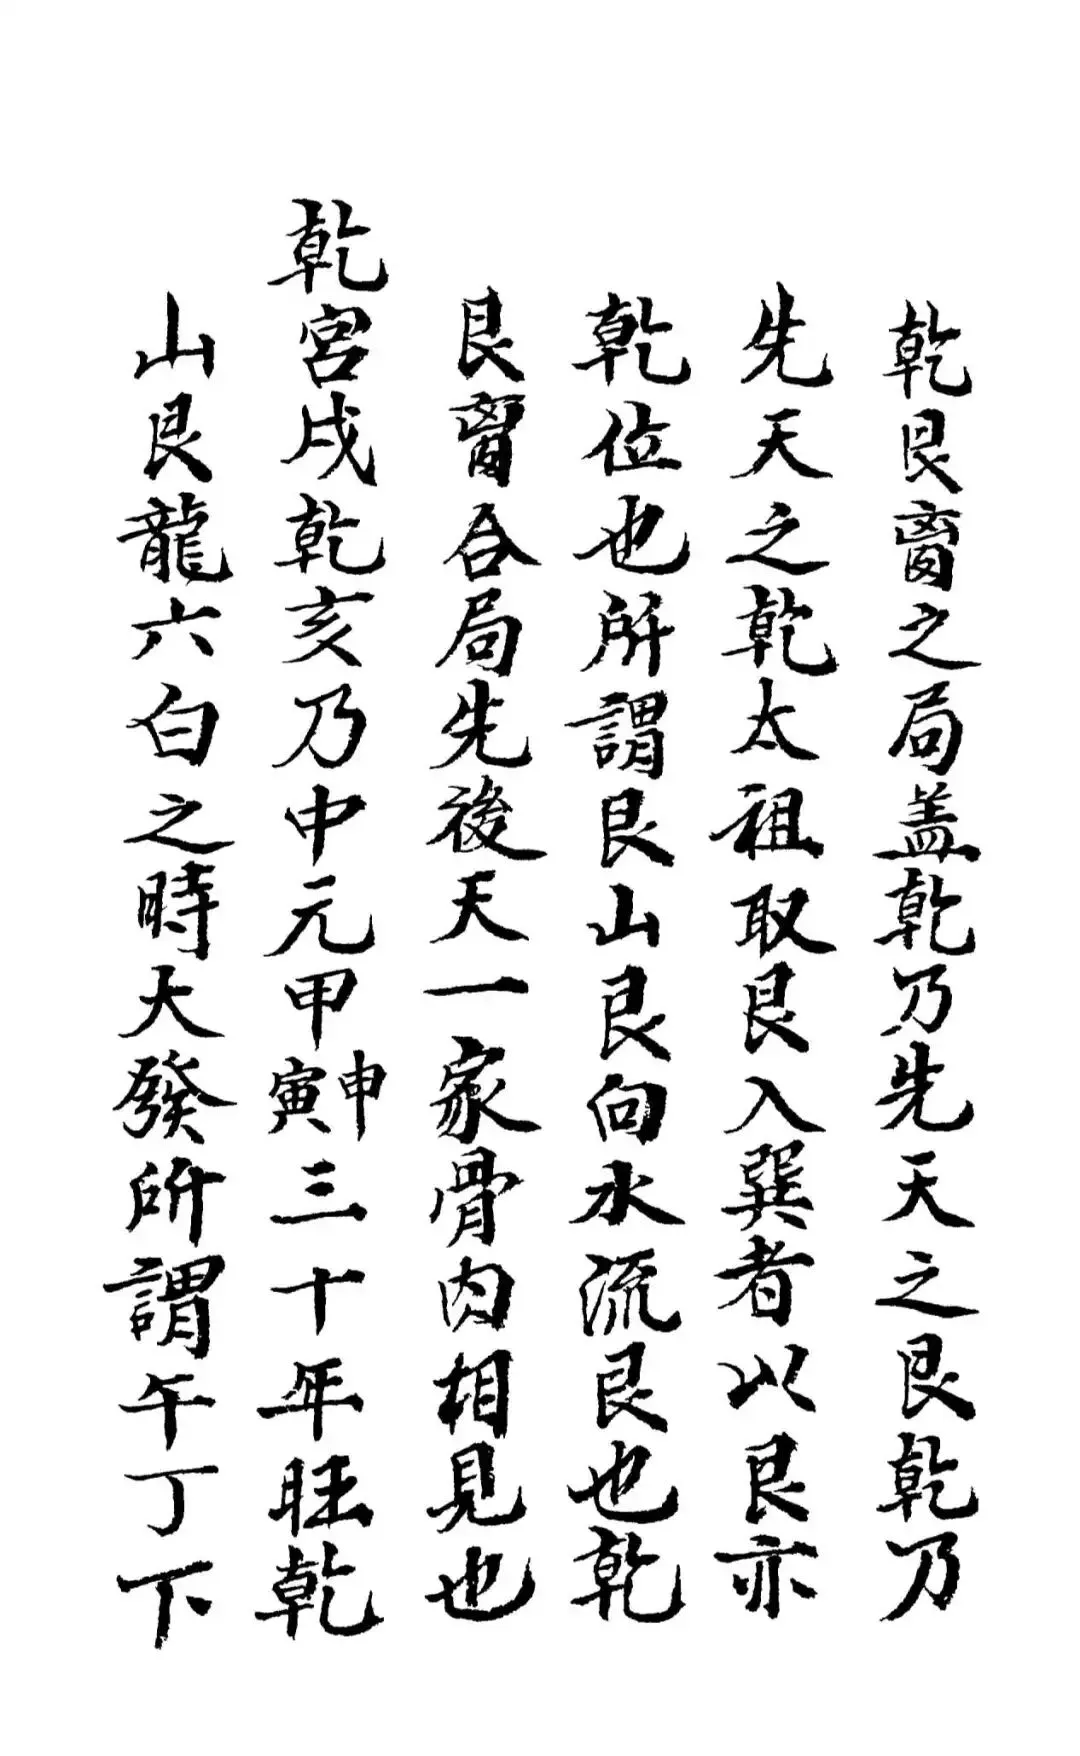 乾艮窗之局盖乾乃先天之艮乾乃
先天之乾太祖取艮入巽者以艮亦
乾位也所謂艮山艮向水流艮也乾
艮窗合局先後天一家骨肉相見也
乾宮戌乾亥乃中元甲申寅三十年旺乾
山艮龍六白之時大發所謂午丁下